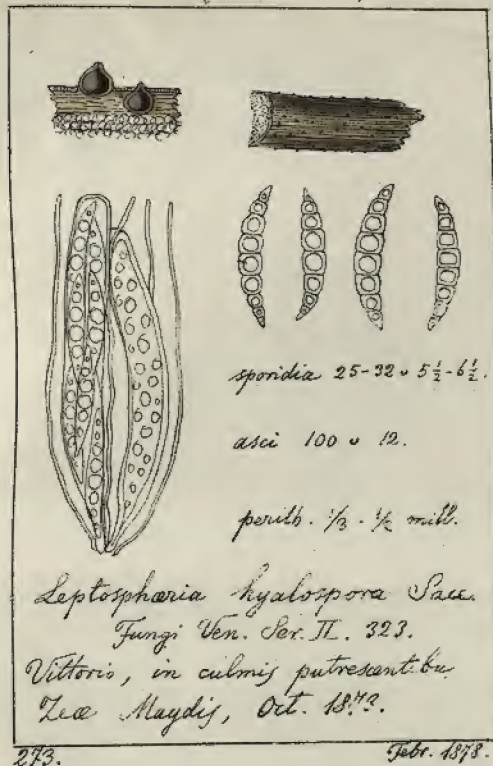 sporidia 25-32 υ 5½-6½.
asci 100 υ 12.
perith. ⅓ - ½ mill.
Leptosphæria hyalospora Sacc.
Fungi Ven. Ser. II. 323.
Vittorio, in culmis putrescentibu
Zeæ Maydis, Oct.
273.
Febr. 1878.